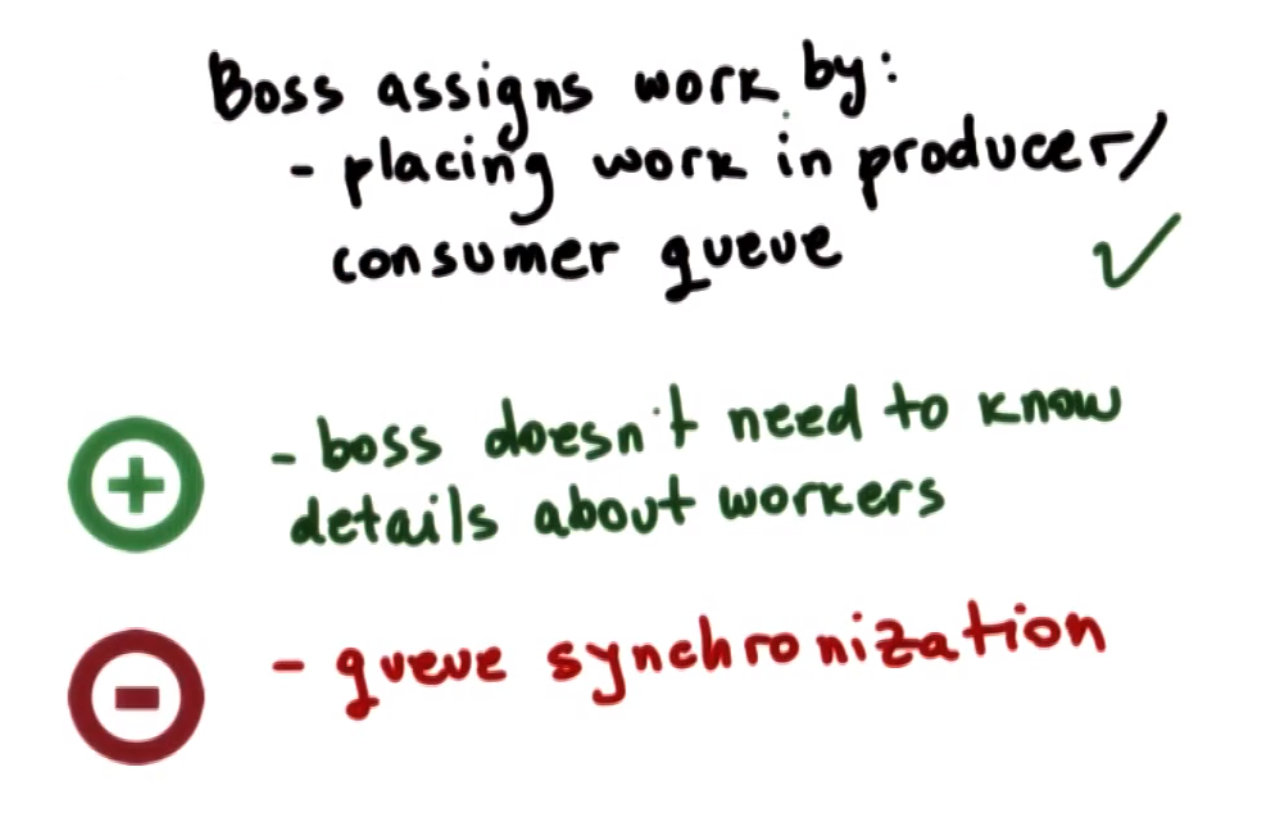 Boss assigns work by:
- placing work in producer/
consumer queue
- boss doesn't need to know
details about workers
- queue synchronization